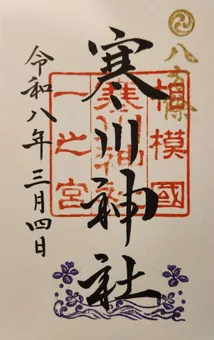 八方除
寒川神社
相模國
一之宮
寒川神社
令和八年三月四日